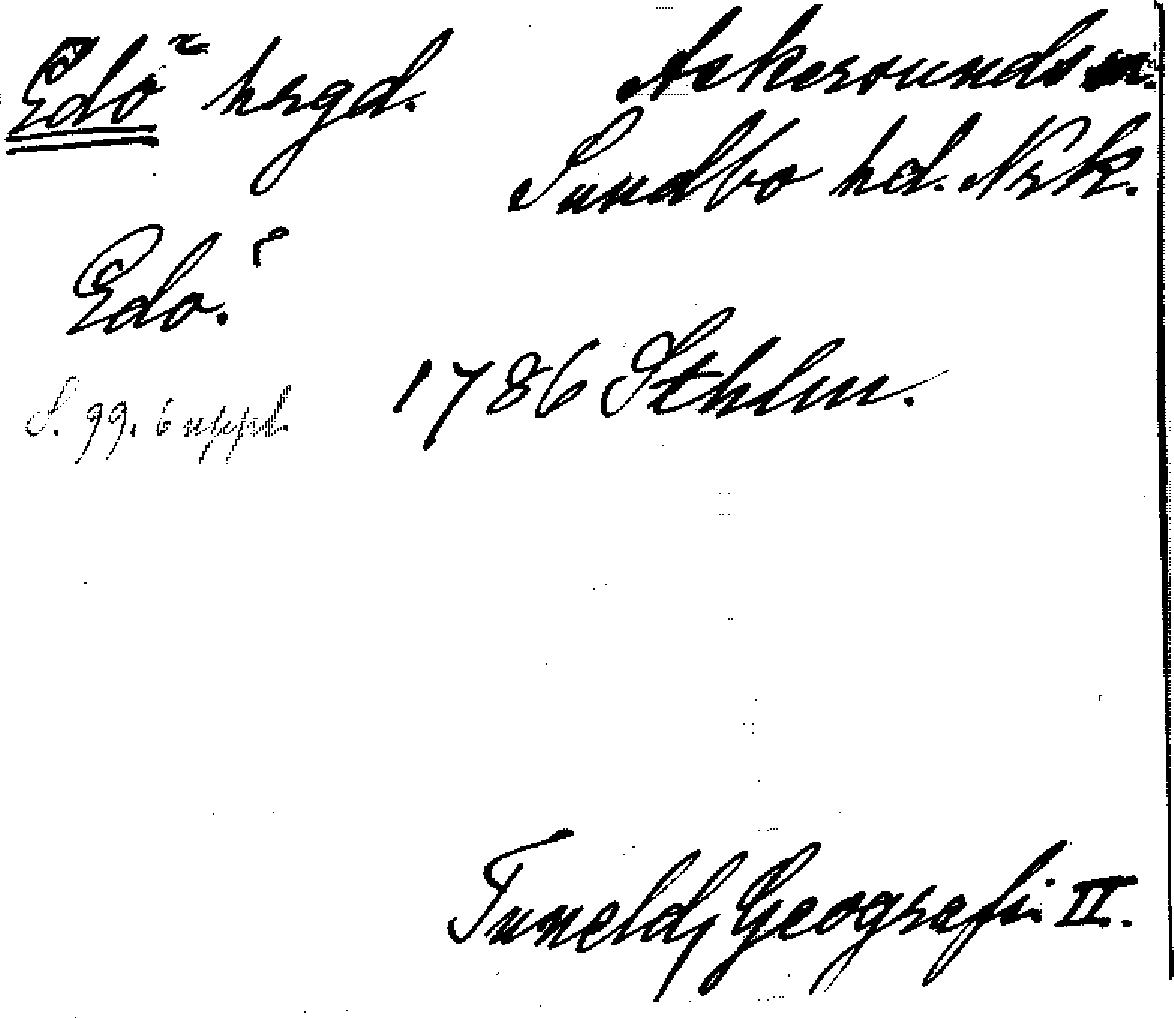 Edö hrgd.
Askersunds sn.
Sundbo hd. Nrk.
Edö.
1786 Sthlm.
S. 99. 6 uppl.
Tuneld, Geografi II.